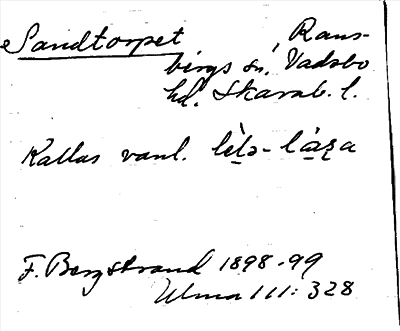 Sandtorpet Rans-
bergs sn. Vadsbo
hd. Skarab. l.
Kallas vanl.
F. Bergstrand 1898-99
Ulma 111: 328